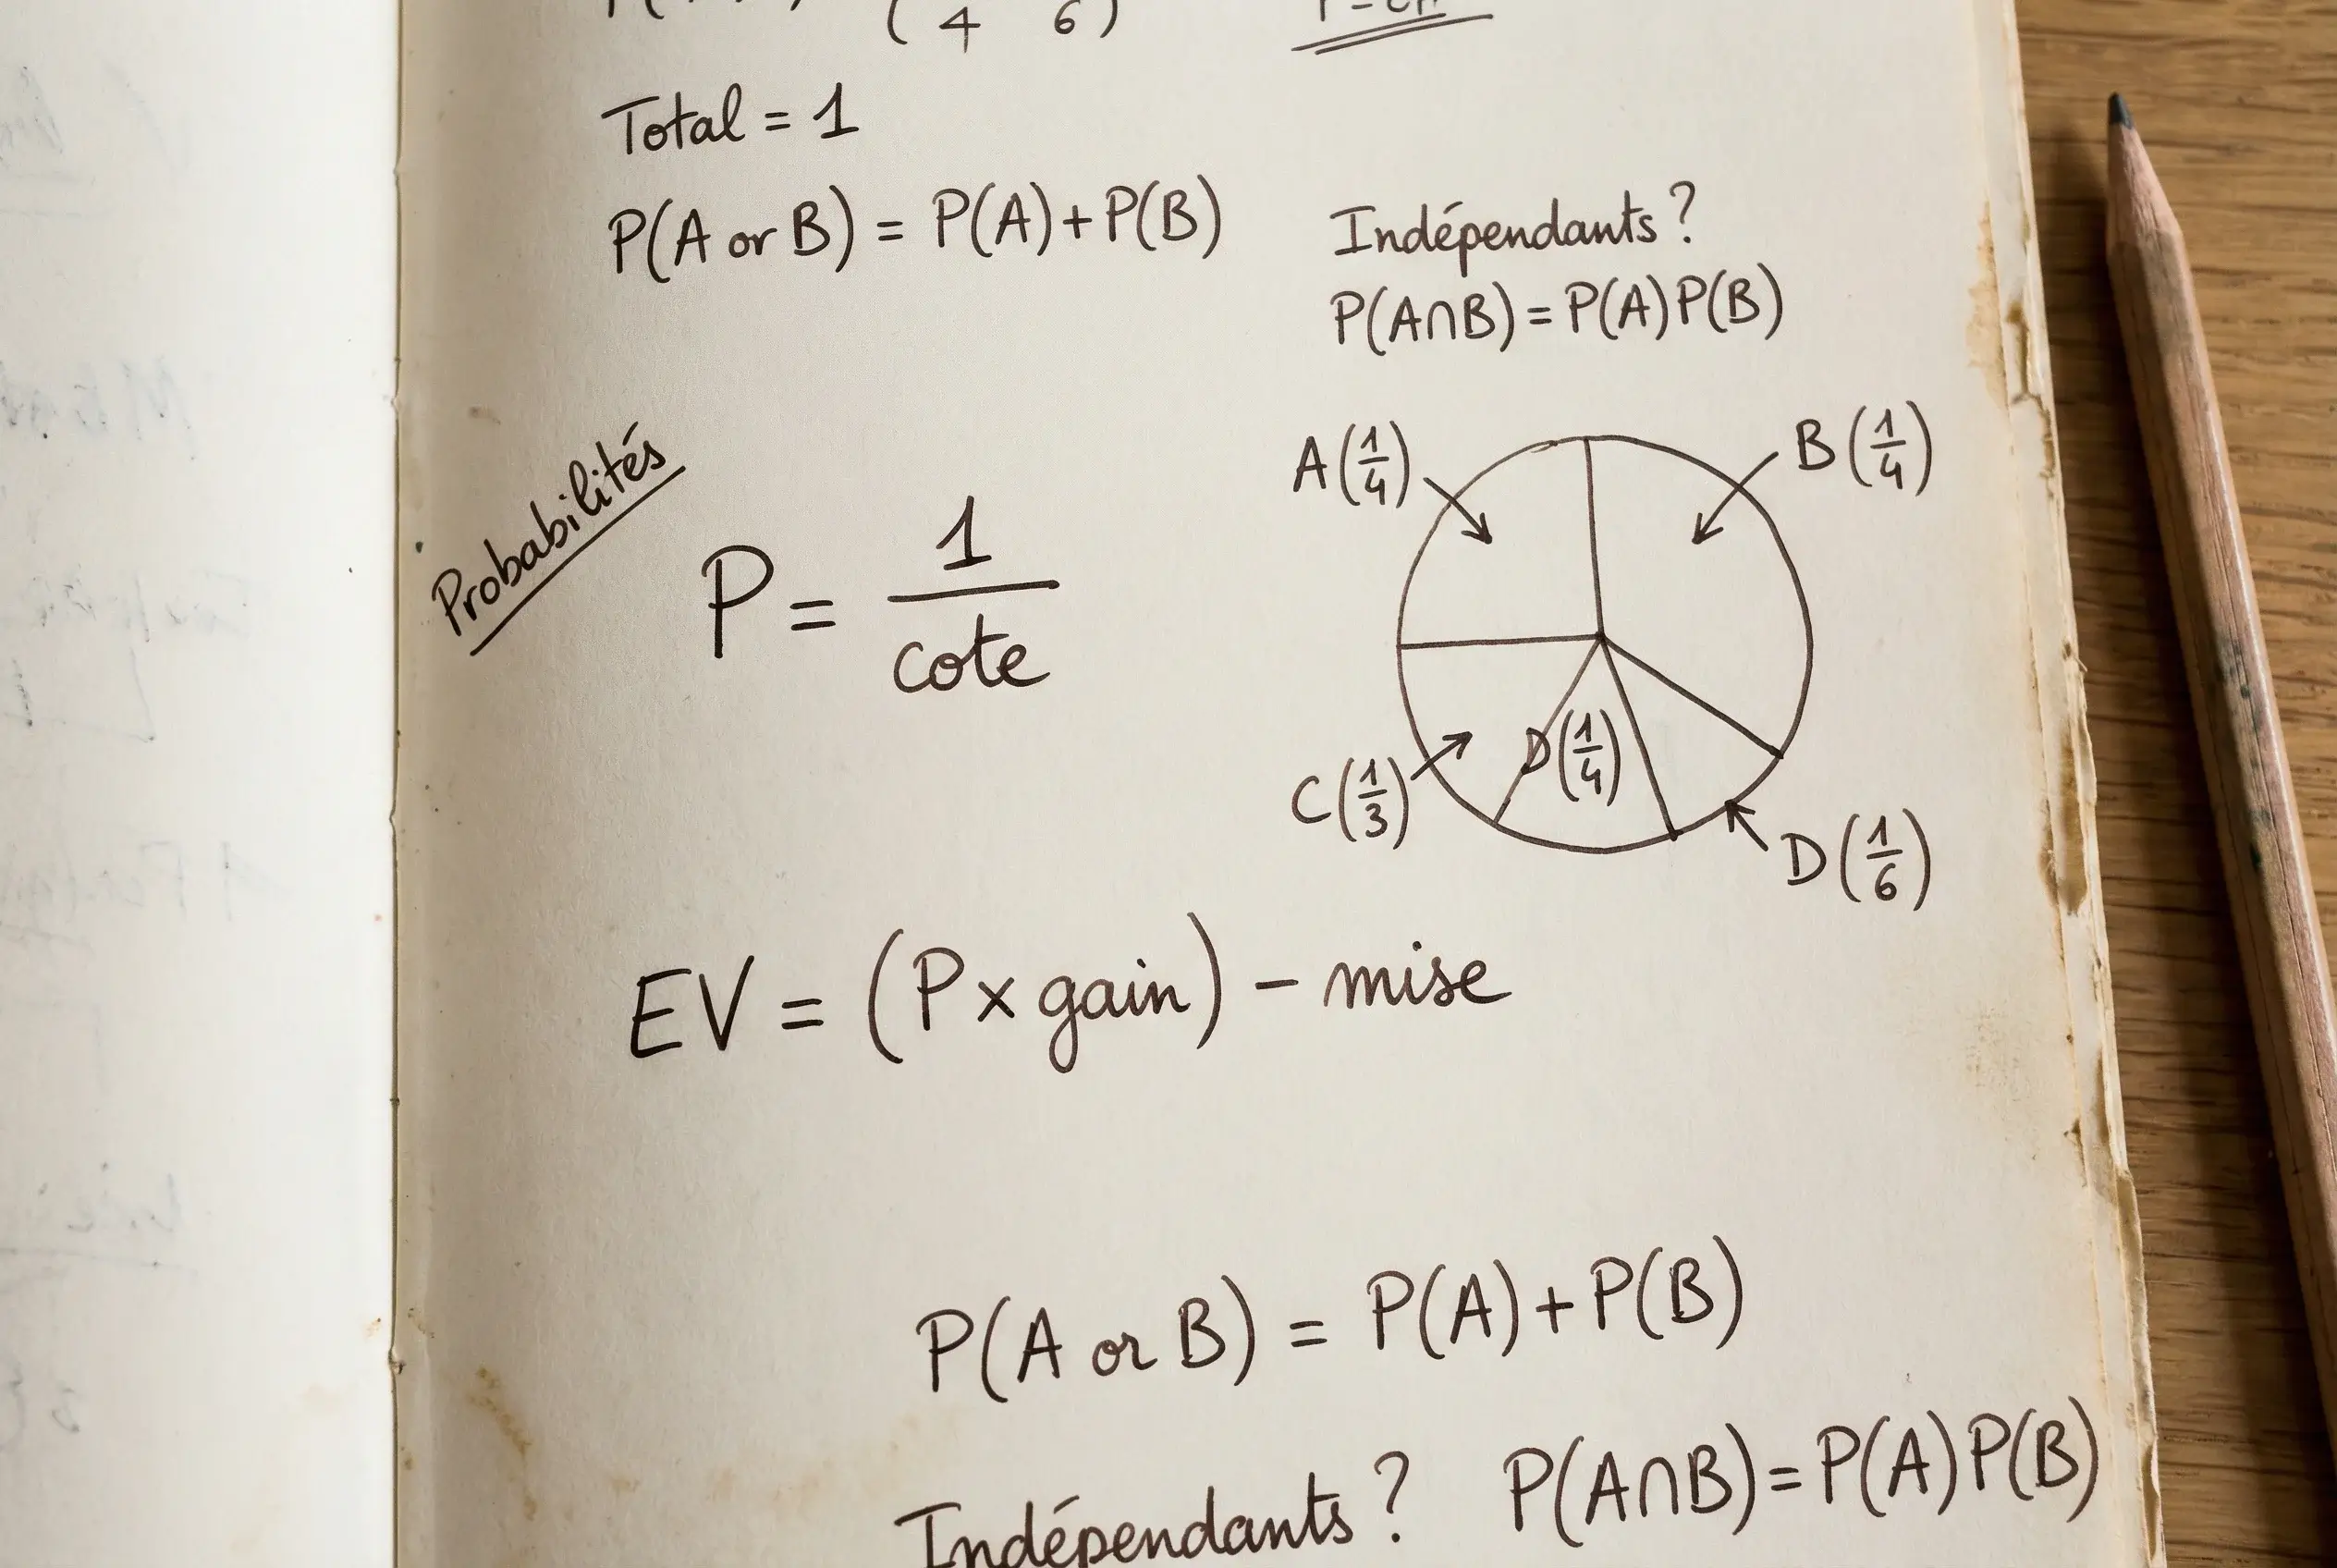 ( 4 6 )
Total = 1
P(A or B) = P(A) + P(B)
Indépendants ?
P(A∩B) = P(A) P(B)
Probabilités
P = 1/cote
A (1/4)
B (1/4)
C (1/3)
D (1/4)
D (1/6)
EV = (P × gain) − mise
P(A or B) = P(A) + P(B)
Indépendants ? P(A∩B) = P(A) P(B)